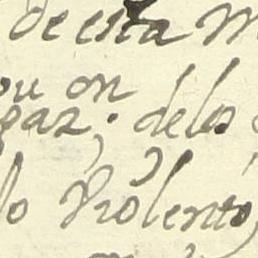 de esta m
ou on
gaz; delos
lo violento,